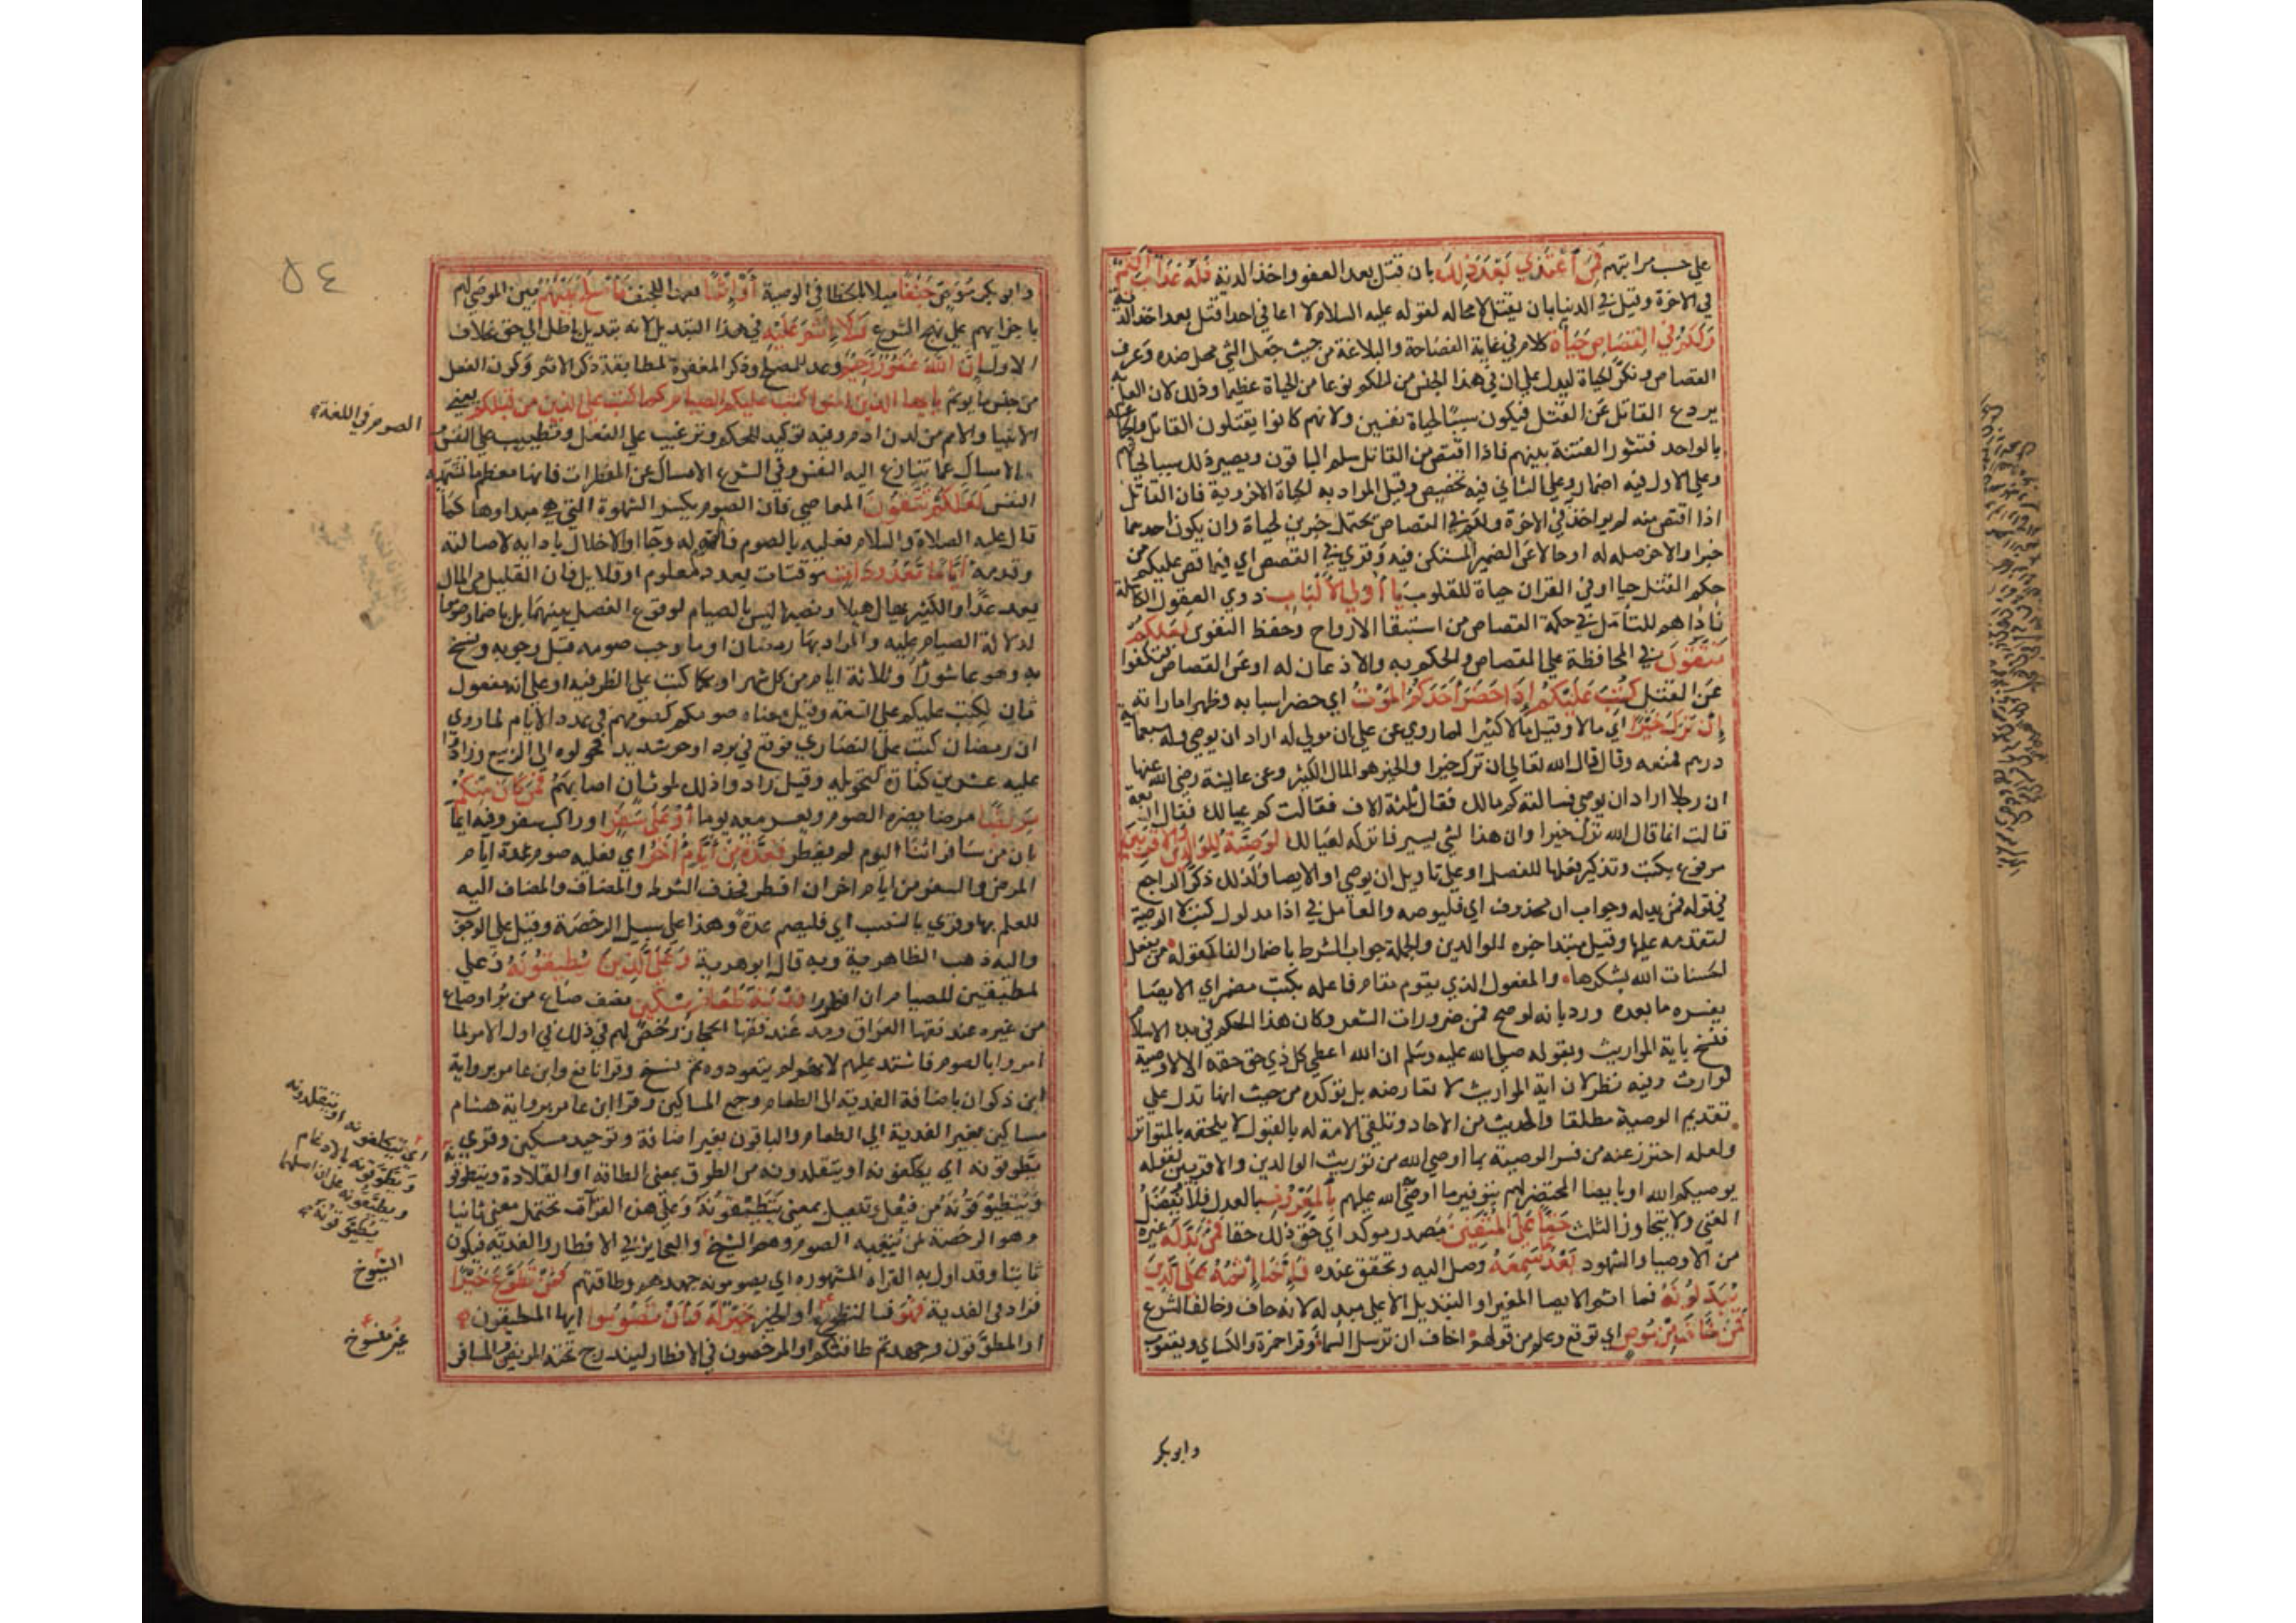 علي حسب مراتبهم فمن اعتدي بعد ذلك بان قتل بعد العفو واخذ الدية فله عذاب اليم
في الاخرة وقيل في الدنيا بان يقتل لا محالة لقوله عليه السلام لا اعافي احدا قتل بعد اخذ الدية
ولكم في القصاص حياة كلام في غاية الفصاحة والبلاغة من حيث جعل الشي محل ضده وعرف
القصاص ونكر الحياة ليدل علي ان في هذا الجنس من الحكم نوعا من الحياة عظيما وذلك لان العلم به
يردع القاتل عن القتل فيكون سببا لحياة نفسين ولانهم كانوا يقتلون القاتل والجماعة
بالواحد فتثور الفتنة بينهم فاذا اقتص من القاتل سلم الباقون ويصير ذلك سببا لحياتهم
وعلي الاول فيه اضمار وعلي الثاني فيه تخصيص وقيل المراد به الحياة الاخروية فان القاتل
اذا اقتص منه لم يواخذ في الاخرة ولكم في القصاص يحتمل خبرين لحياة وان يكون احدهما
خبرا والاخر صلة له او حالا عن الضمير المستكن فيه وقري في القصص اي فيما قص عليكم من
حكم القتل حياة او في القران حياة للقلوب يا اولي الالباب ذوي العقول الكاملة
ناداهم للتأمل في حكمة القصاص من استبقا الارواح وحفظ النفوس لعلكم
تتقون في المحافظة علي القصاص والحكم به والاذعان له او عن القصاص فتكفوا
عن القتل كتب عليكم اذا حضر احدكم الموت اي حضر اسبابه وظهر اماراته
ان ترك خيرا اي مالا وقيل مالا كثيرا لما روي عن علي ان مولي له اراد ان يوصي وله سبعماية
درهم فمنعه وقال قال الله تعالي ان ترك خيرا والخير هو المال الكثير وعن عايشة رضي الله عنها
ان رجلا اراد ان يوصي فسالته كم مالك فقال ثلثة الاف فقالت كم عيالك فقال اربعة
قالت انما قال الله ترك خيرا وان هذا لشي يسير فاتركه لعيالك الوصية للوالدين والاقربين
مرفوع بكتب وتذكير فعلها للفصل او علي تاويل ان يوصي او الايصا ولذلك ذكر الراجع
في قوله فمن بدله وجواب ان محذوف اي فليوصه والعامل في اذا مدلول كتب لا الوصية
لتقدمه عليها وقيل مبتدا خبره للوالدين والجملة جواب الشرط باضمار الفا كقوله من يفعل
الحسنات الله يشكرها والمفعول الذي يقوم مقام فاعله بكتب مضمر اي الايصا
يفسره ما بعده ورد بانه لو صح فمن ضرورات الشعر وكان هذا الحكم في بدا الاسلام
فنسخ باية المواريث وبقوله صلي الله عليه وسلم ان الله اعطي كل ذي حق حقه الا لا وصية
لوارث وفيه نظر لان اية المواريث لا تعارضه بل توكده من حيث انها تدل علي
تقديم الوصية مطلقا والحديث من الاحاد وتلقي الامة له بالقبول لا يلحقه بالمتواتر
ولعله احترز عنه من فسر الوصية بما اوصي الله من توريث الوالدين والاقربين لقوله
يوصيكم الله او بايصا المحتضر لهم بتوفير ما اوصي الله عليهم بالمعروف بالعدل فلا يفضل
الغني ولا يتجاوز الثلث حقا علي المتقين مصدر موكد اي حق ذلك حقا فمن بدله غيره
من الاوصيا والشهود بعد ما سمعه وصل اليه وتحقق عنده فانما اثمه علي الذين
يبدلونه فما اثم الايصا المغير او التبديل الا علي مبدله لانه حاف وخالف الشرع
فمن خاف من موص اي توقع وعلم من قولهم اخاف ان ترسل السماء وقرا حمزة والكساي ويعقوب
وابوبكر
٥٤
وابوبكر موص جنفا ميلا بالخطا في الوصية او اثما تعمدا للجنف فاصلح بينهم بين الموصي لهم
باجرايهم علي نهج الشرع فلا اثم عليه في هذا التبديل لانه تبديل باطل الي حق بخلاف
الاول ان الله غفور رحيم وعد للمصلح وذكر المغفرة لمطابقة ذكر الاثم وكون الفعل
من جنس ما يوثم يا ايها الذين امنوا كتب عليكم الصيام كما كتب علي الذين من قبلكم يعني
الانبيا والامم من لدن ادم وفيه توكيد للحكم وترغيب علي الفعل وتطييب علي النفس
الصوم في اللغة
الامساك عما تنازع اليه النفس وفي الشرع الامساك عن المفطرات فانها معظم ما تشتهيه
النفس لعلكم تتقون المعاصي فان الصوم يكسر الشهوة التي هي مبداوها كما
قال عليه الصلاة والسلام فعليه بالصوم فان الصوم له وجا او الاخلال بادابه لاصالته
وقدمه اياما معدودات موقتات بعدد معلوم او قلايل فان القليل من المال
يعد عدا والكثير يهال هيلا ونصبها ليس بالصيام لوقوع الفصل بينهما بل باضمار صوموا
لدلالة الصيام عليه والمراد بها رمضان او ما وجب صومه قبل وجوبه ونسخ
به وهو عاشورا وثلاثة ايام من كل شهر او بكما كتب علي الظرفية او علي انه مفعول
ثان لكتب عليكم علي السعة وقيل معناه صومكم كصومهم في عدد الايام لما روي
ان رمضان كتب علي النصاري فوقع في برد او حر شديد فحولوه الي الربيع وزادوا
عليه عشرين كفارة لتحويله وقيل زادوا ذلك لموتان اصابهم فمن كان منكم
مريضا مرضا يضره الصوم ويعسر معه يوما او علي سفر او راكب سفر وفيه ايما
بان من سافر اثنا اليوم لم يفطر فعدة من ايام اخر اي فعليه صوم عدة ايام
المرض والسفر من ايام اخر ان افطر فحذف الشرط والمضاف والمضاف اليه
للعلم بها وقري بالنصب اي فليصم عدة وهذا علي سبيل الرخصة وقيل علي الوجوب
واليه ذهب الظاهرية وبه قال ابو هريرة وعلي الذين يطيقونه وعلي
المطيقين للصيام ان افطروا فدية طعام مسكين نصف صاع من بر او صاع
من غيره عند فقها العراق ومد عند فقها الحجاز رخص لهم في ذلك في اول الامر لما
امروا بالصوم فاشتد عليهم لانهم لم يتعودوه ثم نسخ وقرا نافع وابن عامر برواية
ابن ذكوان باضافة الفدية الي الطعام وجمع المساكين وقرا ابن عامر برواية هشام
مساكين بغير اضافة الفدية الي الطعام والباقون بغير اضافة وتوحيد مسكين وقري
يطوقونه اي يكلفونه او يتقلدونه من الطوق بمعني الطاقة او القلادة ويتطوقونه
اي يتكلفونه او يتقلدونه
ويطوقونه بالادغام
ويطيقونه علي ان اصلها
يطيوقونه
ويتطيوقونه من فيعل وتفيعل بمعني يتطيقونه وعلي هذه القراآت يحتمل معني ثانيا
وهو الرخصة لمن يتعبه الصوم وهم الشيخ والعجايز في الافطار والفدية فيكون
الشيوخ
ثابتا وقد اول به القراة المشهورة اي يصومونه جهدهم وطاقتهم فمن تطوع خيرا
فزاد في الفدية فهو فالتطوع او الخير خير له وان تصوموا ايها المطيقون
غير منسوخ
او المطوقون وجهدتم طاقتكم او المرخصون في الافطار ليندرج تحته المريض والمسافر